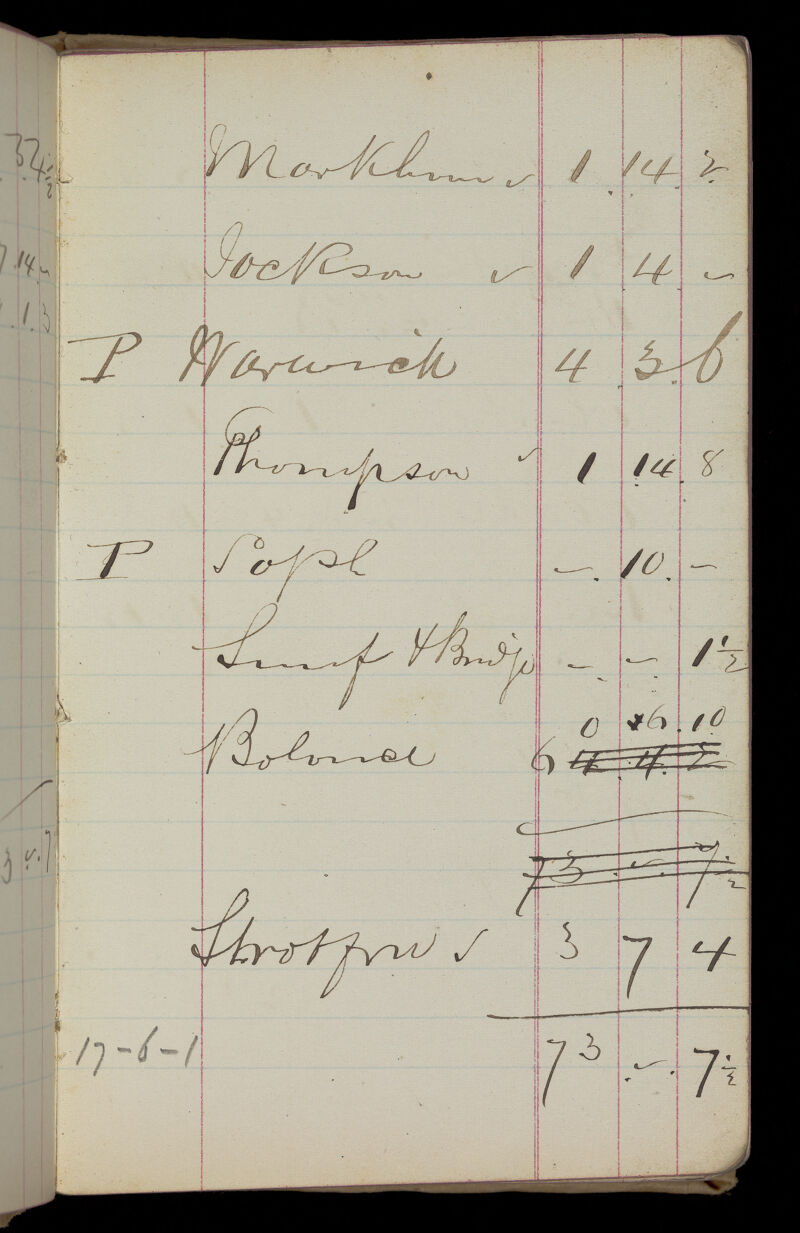 34½
7.14.-
. 1. 3
3.-.7
Markham ✓ 1. 14. 2
Jackson ✓ 1. 4. -
P Warwick 4. 3. 6
Thompson ✓ 1. 14. 8
P Soph -. 10. -
& Bridge -. -. 1½
0 6. 10
Boland 6 4. 4. 2
73. -. 7½
Stratford ✓ 3 7 4
17-6-1 73. -. 7½